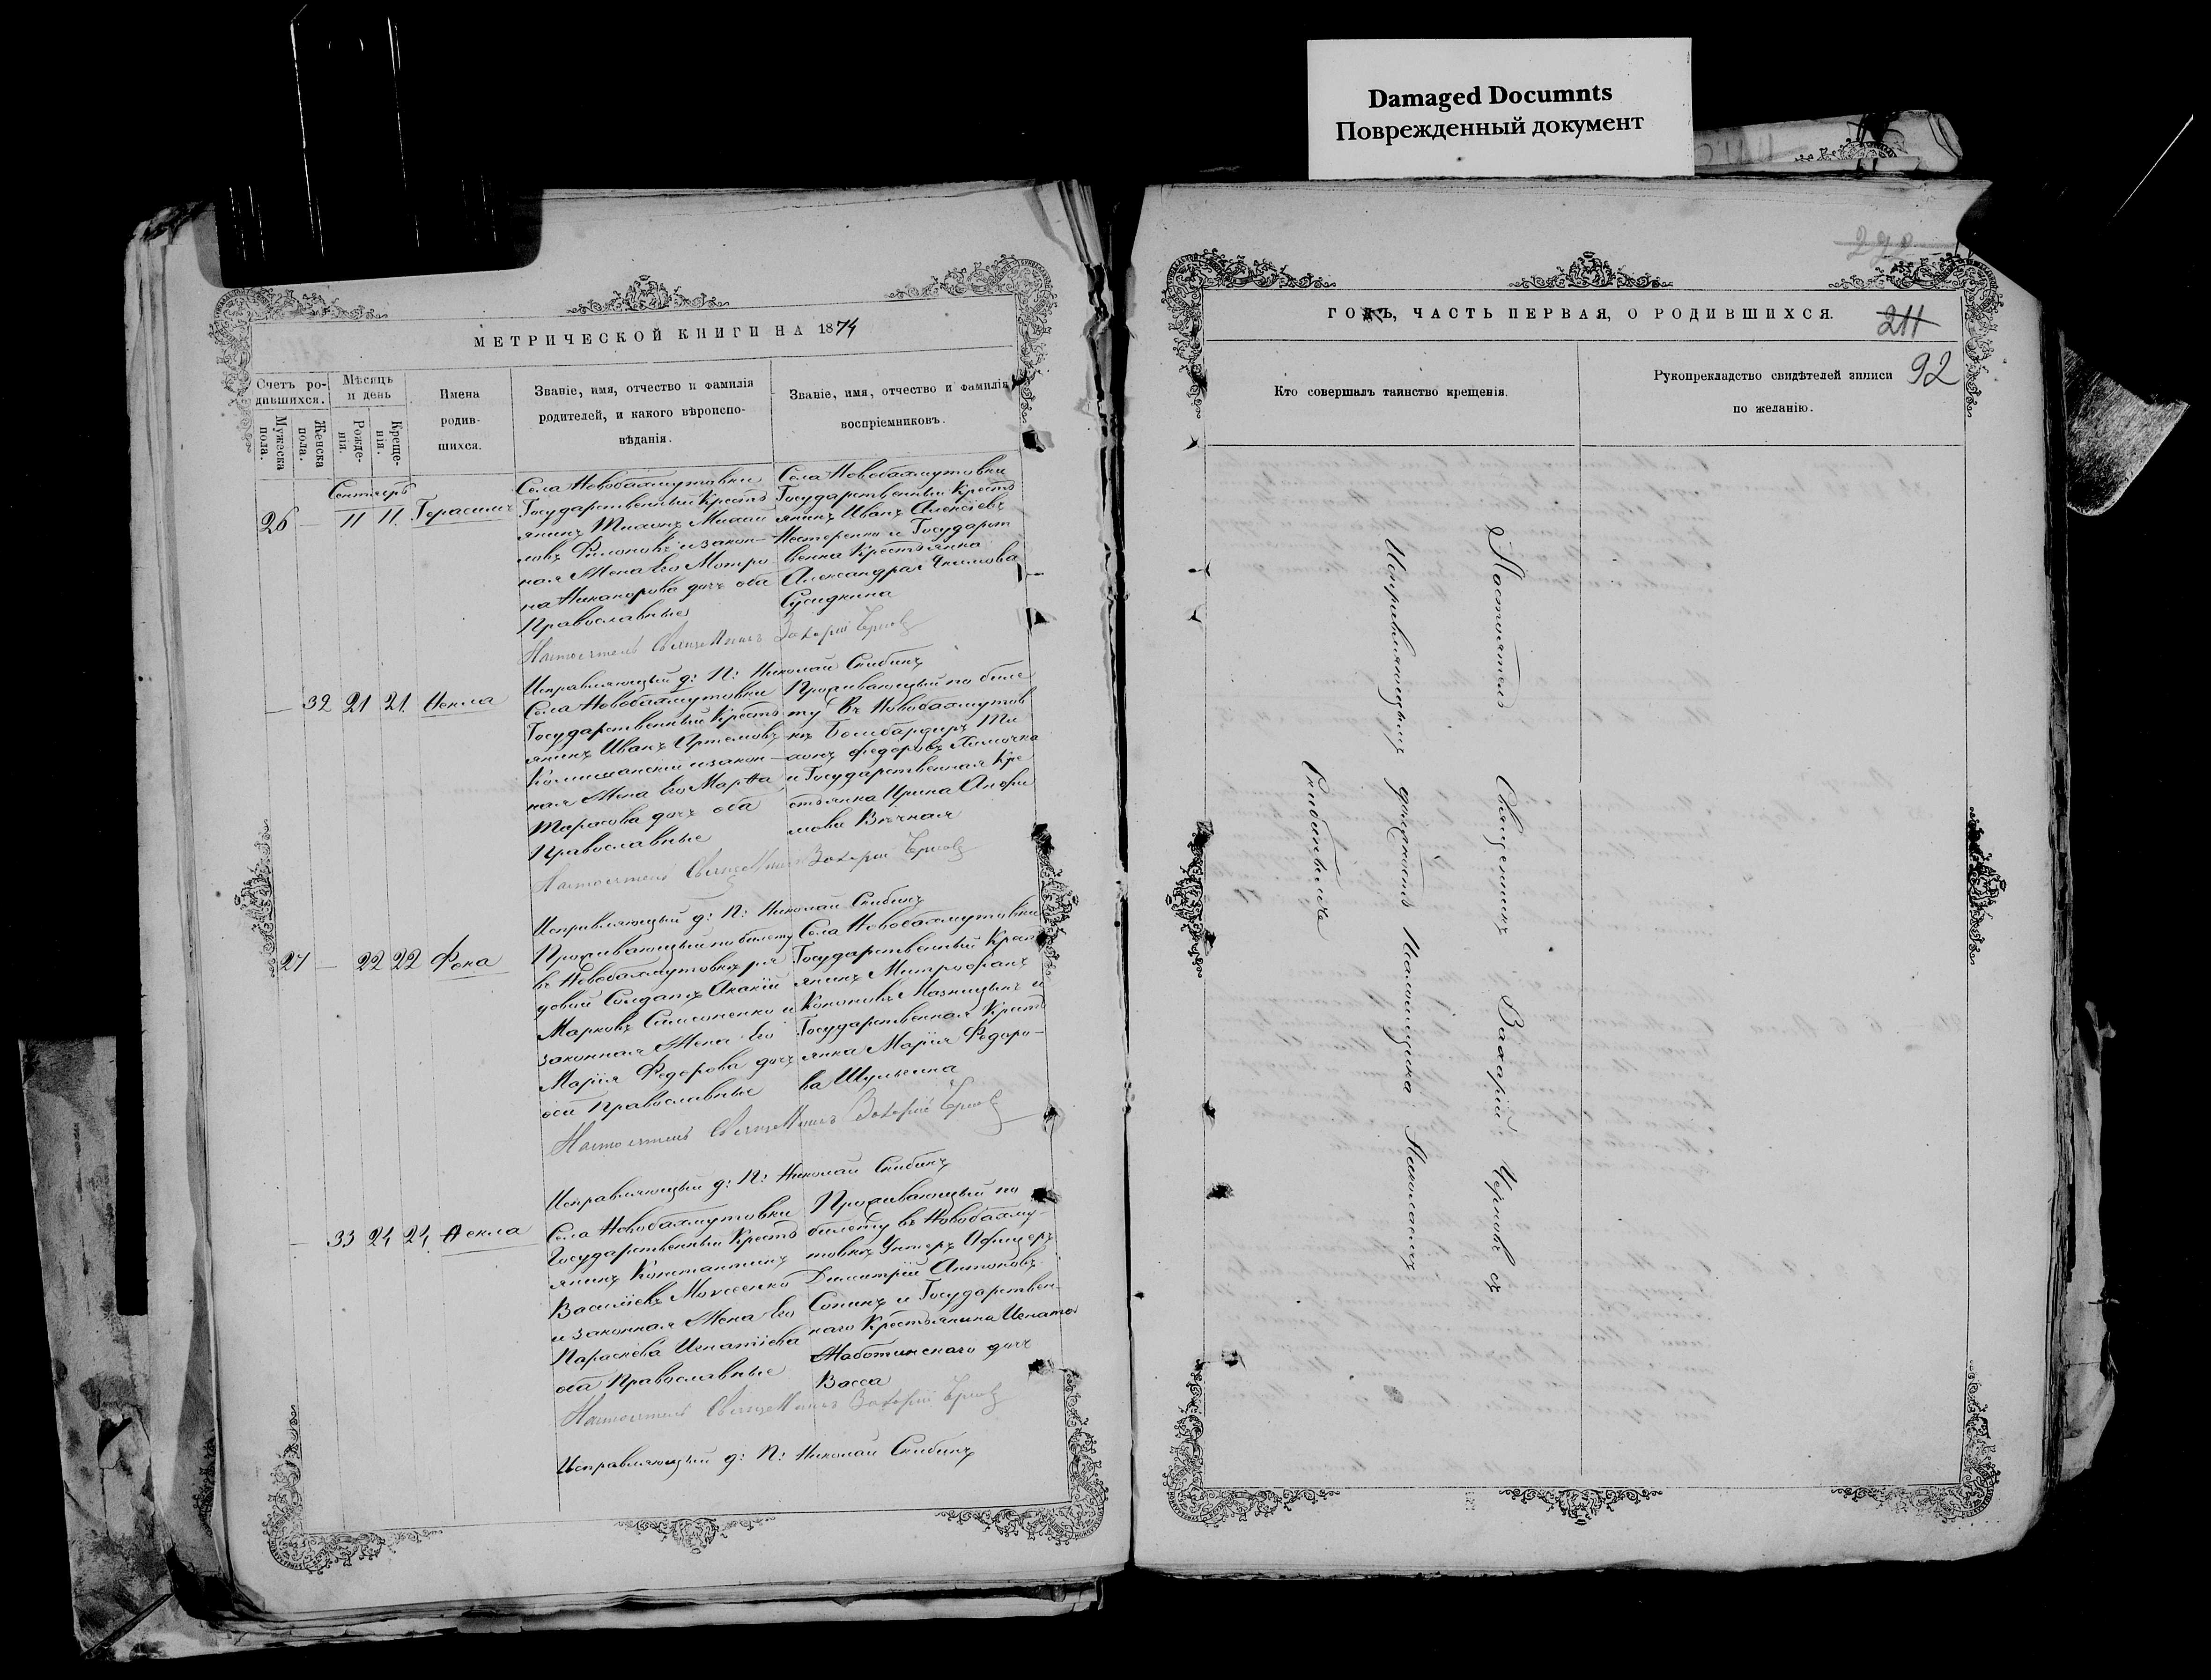 Damaged Documnts
Поврежденный документ
МЕТРИЧЕСКОЙ КНИГИ НА 1874
Счетъ ро-
дившихся.
Мужеска
пола.
Женска
пола.
Мѣсяцъ
и день
Рожде-
нія.
Креще-
нія.
Имена
родив-
шихся.
Званіе, имя, отчество и фамилія
родителей, и какого вѣроиспо-
вѣданія.
Званіе, имя, отчество и фамилія
воспріемниковъ.
Сентябрь
26 — 11 11. Герасимъ
Села Новобахмутовки
Государственный Кресть
янинъ Тихонъ Михай
ловъ Филоновъ и закон-
ная Жена его Мотро
на Никанорова дочь оба
Православные
Села Новобахмутовки
Государственный Кресть
янинъ Иванъ Алексіевъ
Нестеренко и Государст
венна Крестьянка
Александра Якимова
Настоятель Священникъ Захарій Черновъ
Исправляющій д: П: Николай Скибинъ
— 32 21 21.
Села Новобахмутовки
Государственный Кресть
янинъ Иванъ Артемовъ
и закон-
ная Жена его Марѳа
Тарасова дочь оба
Православные
Проживающій по биле
ту въ Новобахмутов
кѣ Бомбардиръ Ти
хонъ Федоровъ
и Государственная Кре
стьянка Ирина
Настоятель Священникъ Захарій Черновъ
Исправляющій д: П: Николай Скибинъ
27 — 22 22 Фока
Проживающій по билету
въ Новобахмутовкѣ ря
довой Солдатъ Акакій
Марковъ Симоненко и
законная Жена его
Марія Федорова дочь
оба Православные
Села Новобахмутовки
Государственный Крест
янинъ Митрофанъ
Кононовъ и
Государственная Кресть
янка Марія Федоро-
ва
Настоятель Священникъ Захарій Черновъ
Исправляющій д: П: Николай Скибинъ
— 33 24 24. Ѳекла
Села Новобахмутовки
Государственный Кресть
янинъ Константинъ
Василіевъ Моисеенко
и законная Жена его
Параскева Игнатіева
оба Православные
Проживающій по
билету въ Новобахму-
товкѣ Унтеръ Офицеръ
Димитрій Антоновъ
Сопинъ и Государствен-
наго Крестьянина Игнатія
Жаботинскаго дочь
Васса
Настоятель Священникъ Захарій Черновъ
Исправляющій д: П: Николай Скибинъ
222
ГОДЪ, ЧАСТЬ ПЕРВАЯ, О РОДИВШИХСЯ.
211
92
Кто совершалъ таинство крещенія.
Рукоприкладство свидѣтелей записи
по желанію.
Настоятель Священникъ Захарій Черновъ съ
Исправляющимъ должность Псаломщика Николаемъ
Скибинымъ